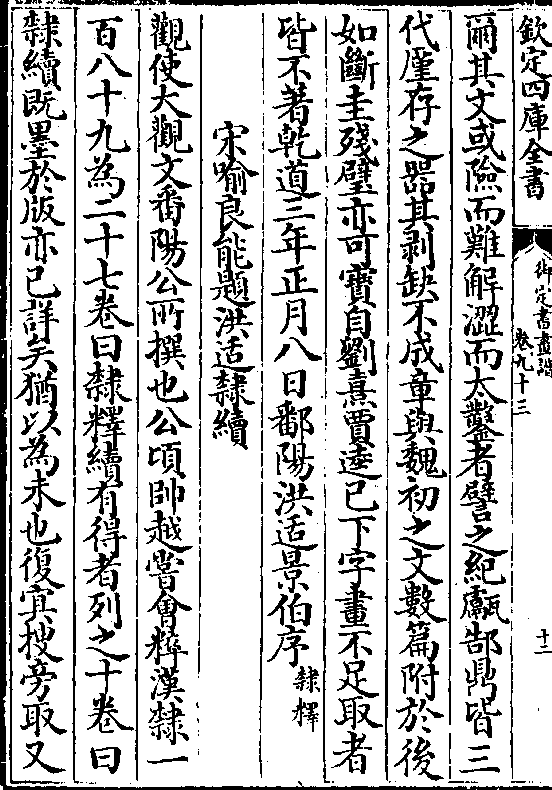 欽定四庫全書
御定書畫譜
卷九十三
十二
爾其文或險而難解澀而太鑿者譬之紀甗郜鼎皆三
代廑存之器其剥缺不成章與魏初之文數篇附於後
如斷圭殘璧亦可寶自劉熹賈逵已下字畫不足取者
皆不著乾道三年正月八日鄱陽洪适景伯序隸釋
宋喻良能題洪适隸續
觀使大觀文番陽公所撰也公頃帥越嘗會稡漢隸一
百八十九為二十七卷曰隸釋續有得者列之十卷曰
隸續既墨於版亦已詳矣猶以為未也復冥搜旁取又